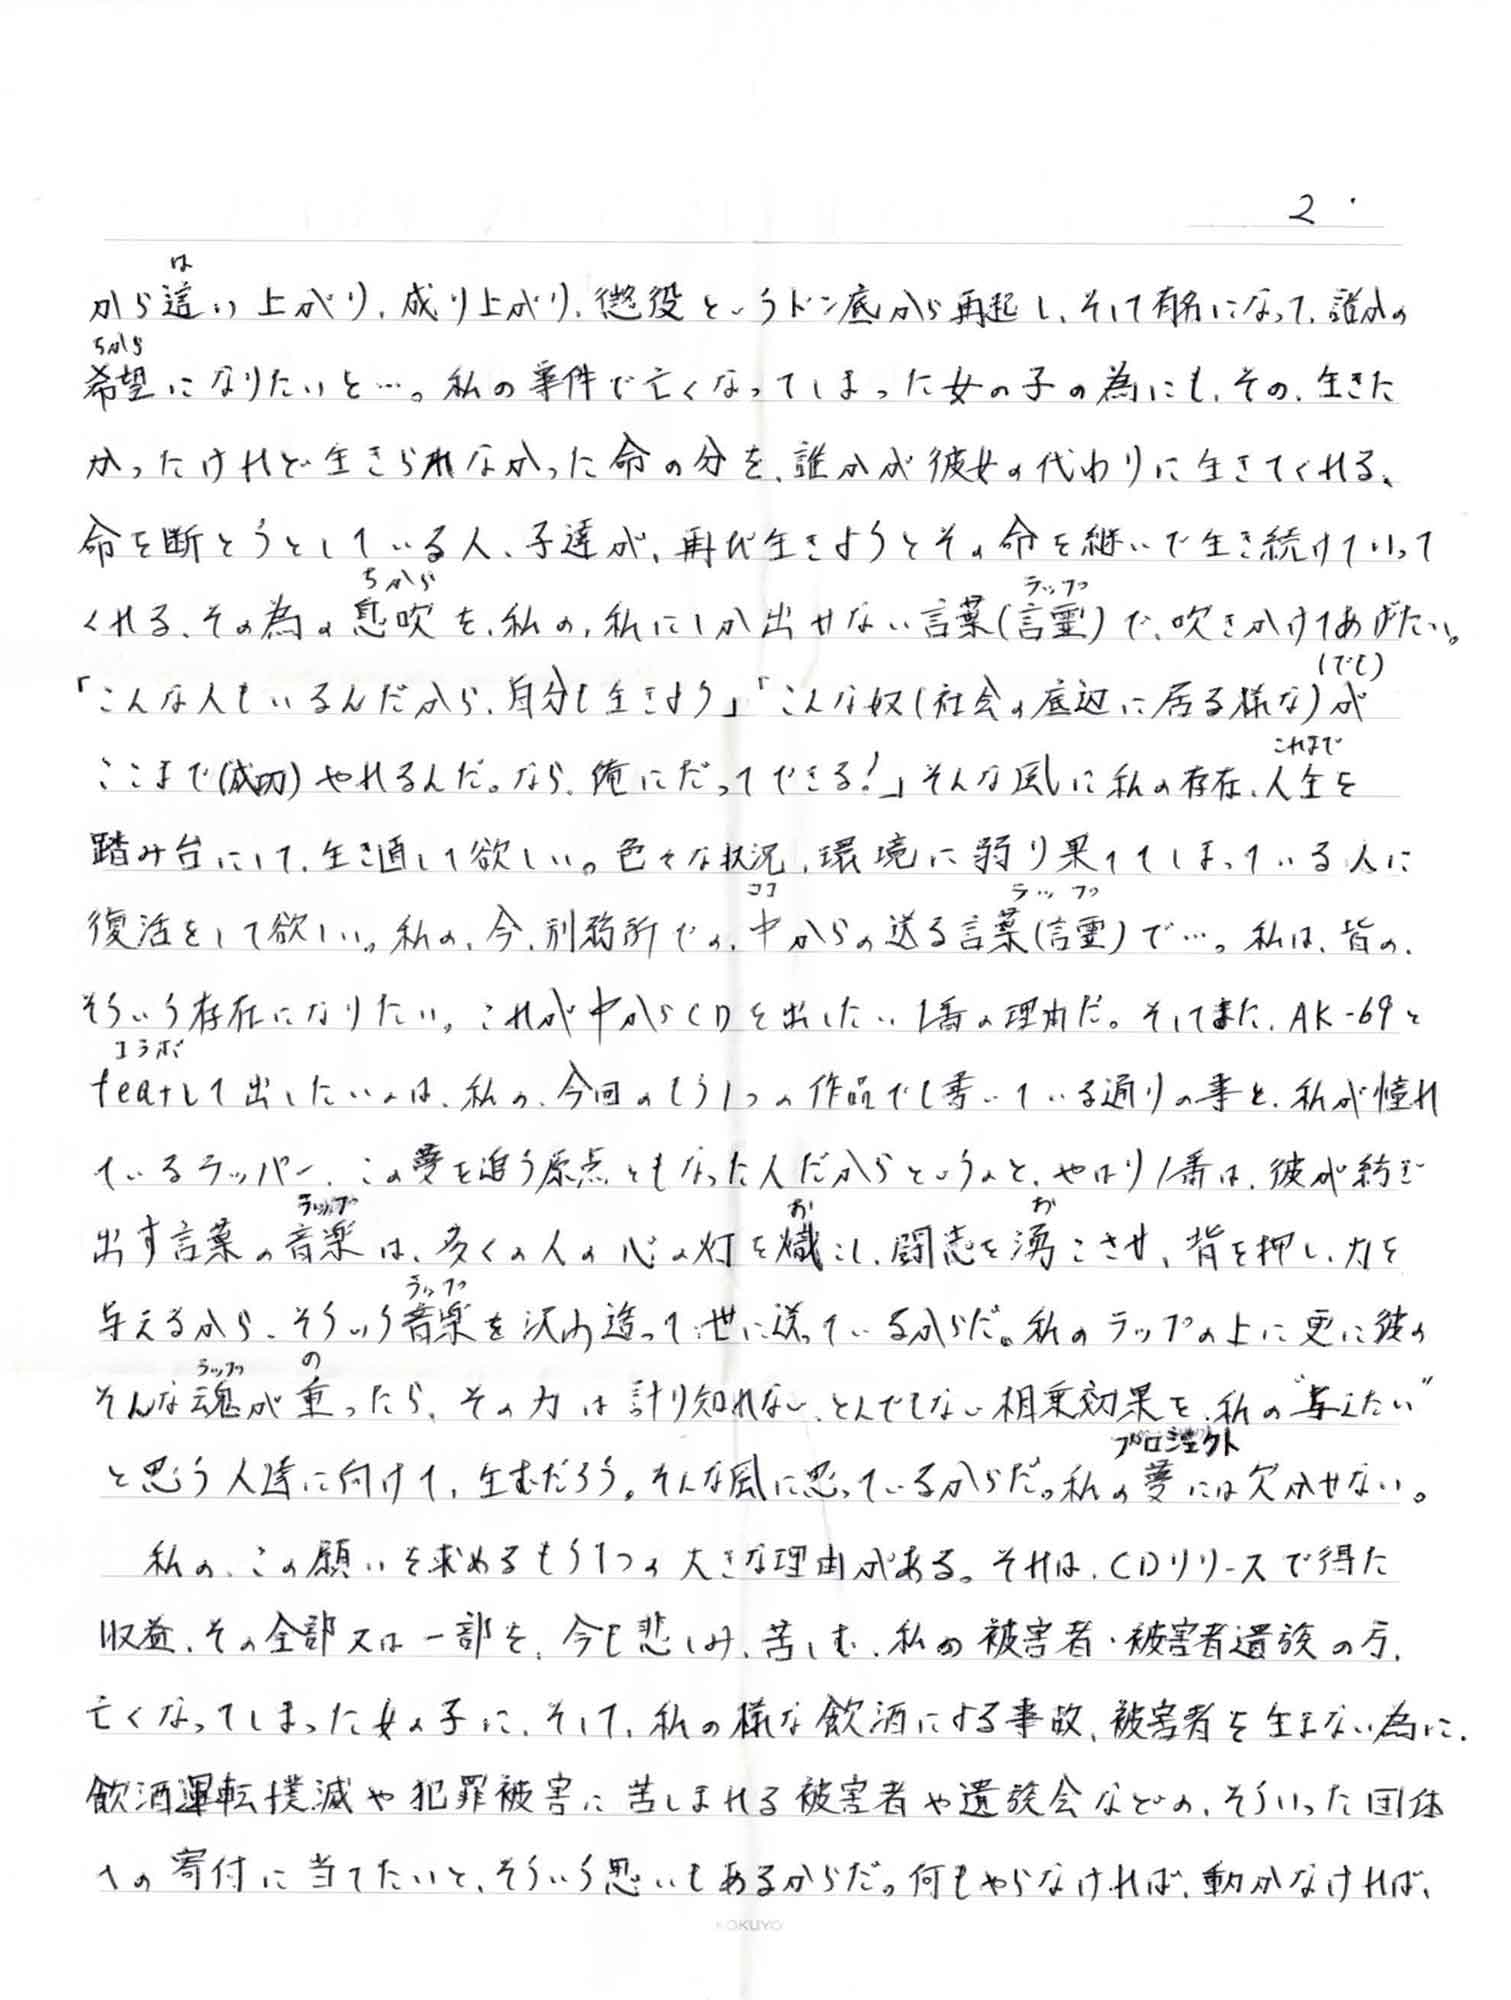 2.
は
から這い上がり、成り上がり、懲役というドン底から再起し、そして有名になって、誰かの
ちから
希望になりたいと…。私の事件で亡くなってしまった女の子の為にも、その、生きた
かったけれど生きられなかった命の分を、誰かが彼女の代わりに生きてくれる、
命を断とうとしている人、子達が、再び生きようとその命を継いで生き続けていって
ちから ラップ
くれる、その為の息吹を、私の、私にしか出せない言葉(言霊)で、吹きかけてあげたい。
(でも)
「こんな人もいるんだから、自分も生きよう」「こんな奴(社会の底辺に居る様な)が
これまで
ここまで(成功)やれるんだ。なら、俺にだってできる!」そんな風に私の存在、人生を
踏み台にして、生き直して欲しい。色々な状況、環境に弱り果ててしまっている人に
ココ ラップ
復活をして欲しい。私の、今、刑務所での、中からの送る言葉(言霊)で…。私は、皆の、
そういう存在になりたい。これが中からCDを出したい1番の理由だ。そしてまた、AK-69と
コラボ
featして出したいのは、私の、今回のもう1つの作品でも書いている通りの事と、私が憧れ
ているラッパー、この夢を追う原点ともなった人だからというのと、やはり1番は、彼が紡ぎ
ラップ お お
出す言葉の音楽は、多くの人の心の灯を熾こし、闘志を湧こさせ、背を押し、力を
ラップ
与えるから、そういう音楽を沢山造って世に送っているからだ。私のラップの上に更に彼の
ラップ の
そんな魂が重ったら、その力は計り知れない、とんでもない相乗効果を、私の“与えたい”
プロジェクト
と思う人達に向けて、生むだろう。そんな風に思っているからだ。私の夢には欠かせない。
私の、この願いを求めるもう1つの大きな理由がある。それは、CDリリースで得た
収益、その全部又は一部を、今も悲しみ、苦しむ、私の被害者・被害者遺族の方、
亡くなってしまった女の子に、そして、私の様な飲酒による事故、被害者を生まない為に、
飲酒運転撲滅や犯罪被害に苦しまれる被害者や遺族会などの、そういった団体
への寄付に当てたいと、そういう思いもあるからだ。何もやらなければ、動かなければ、
KOKUYO